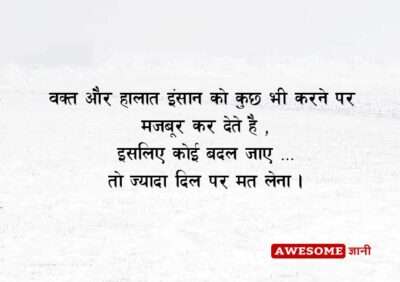 वक्त और हालात इंसान को कुछ भी करने पर
मजबूर कर देते है ,
इसलिए कोई बदल जाए ...
तो ज्यादा दिल पर मत लेना ।
AWESOME ज्ञानी